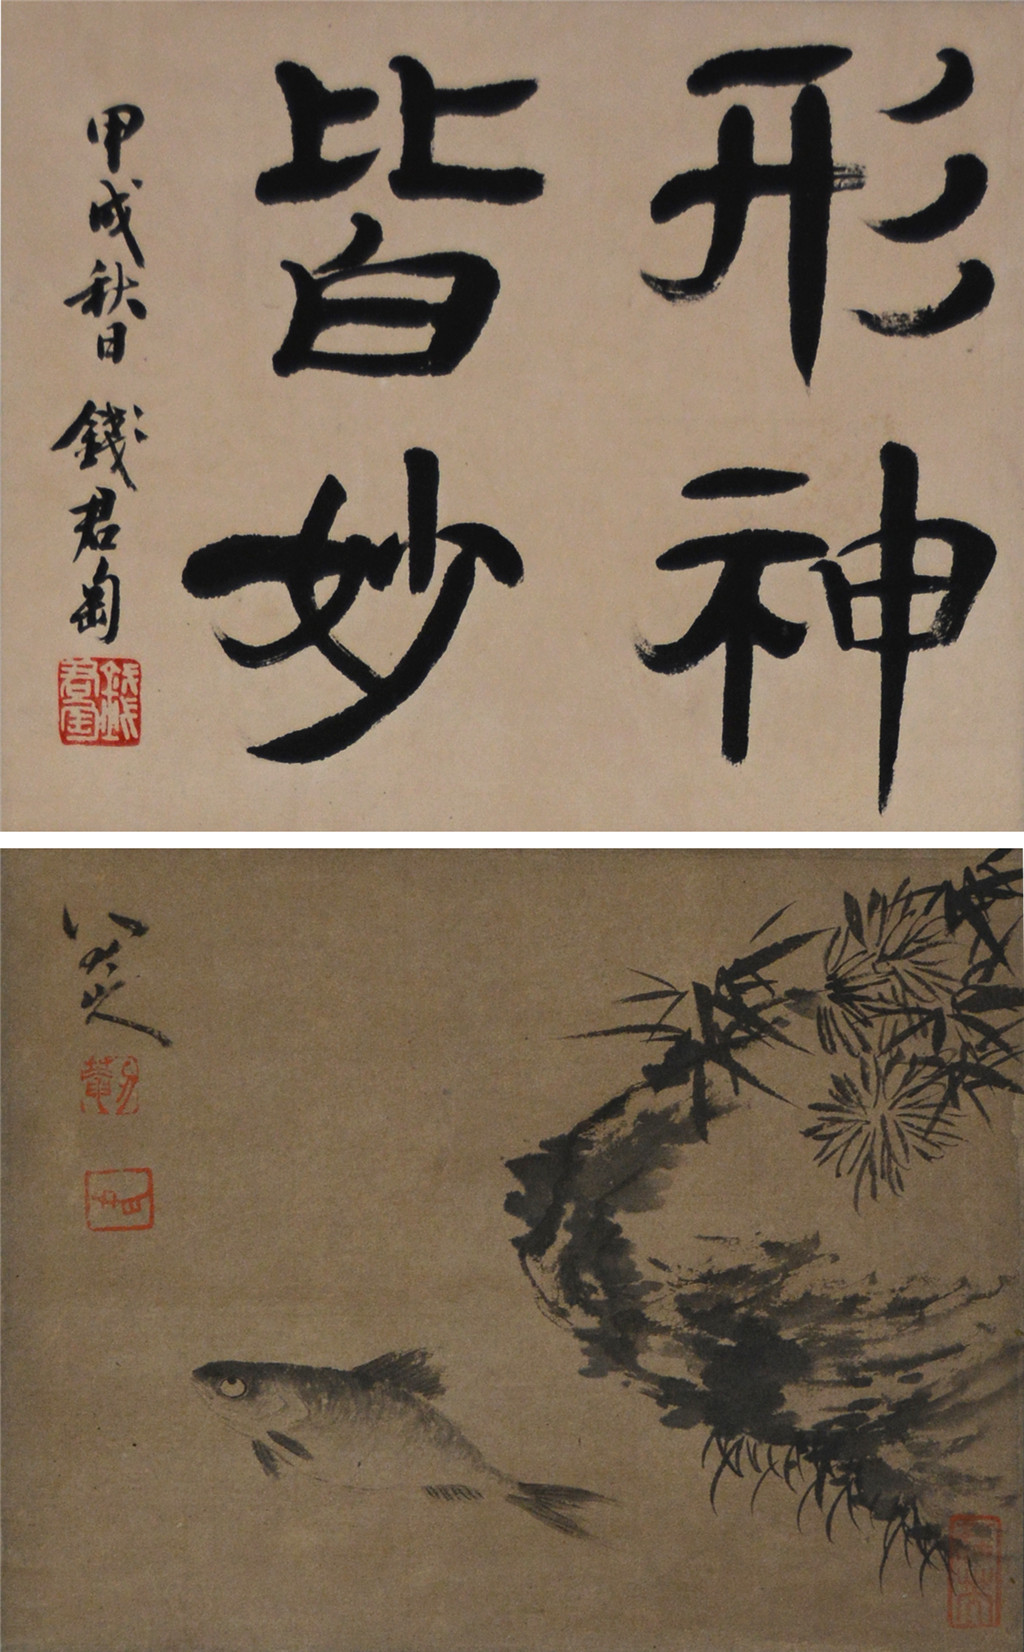 形神
皆妙
甲戌秋日 錢君匋
錢君匋
八大山人